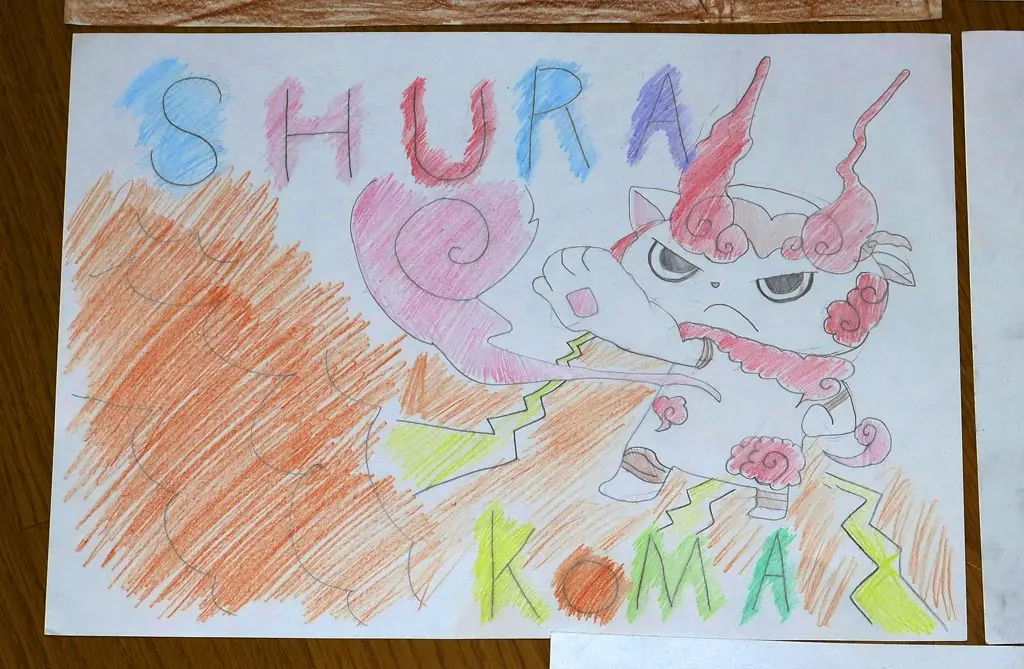 SHURA
KOMA